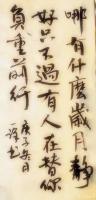 哪有什麼歲月靜
好只不過有人在替你
負重前行
庚子年